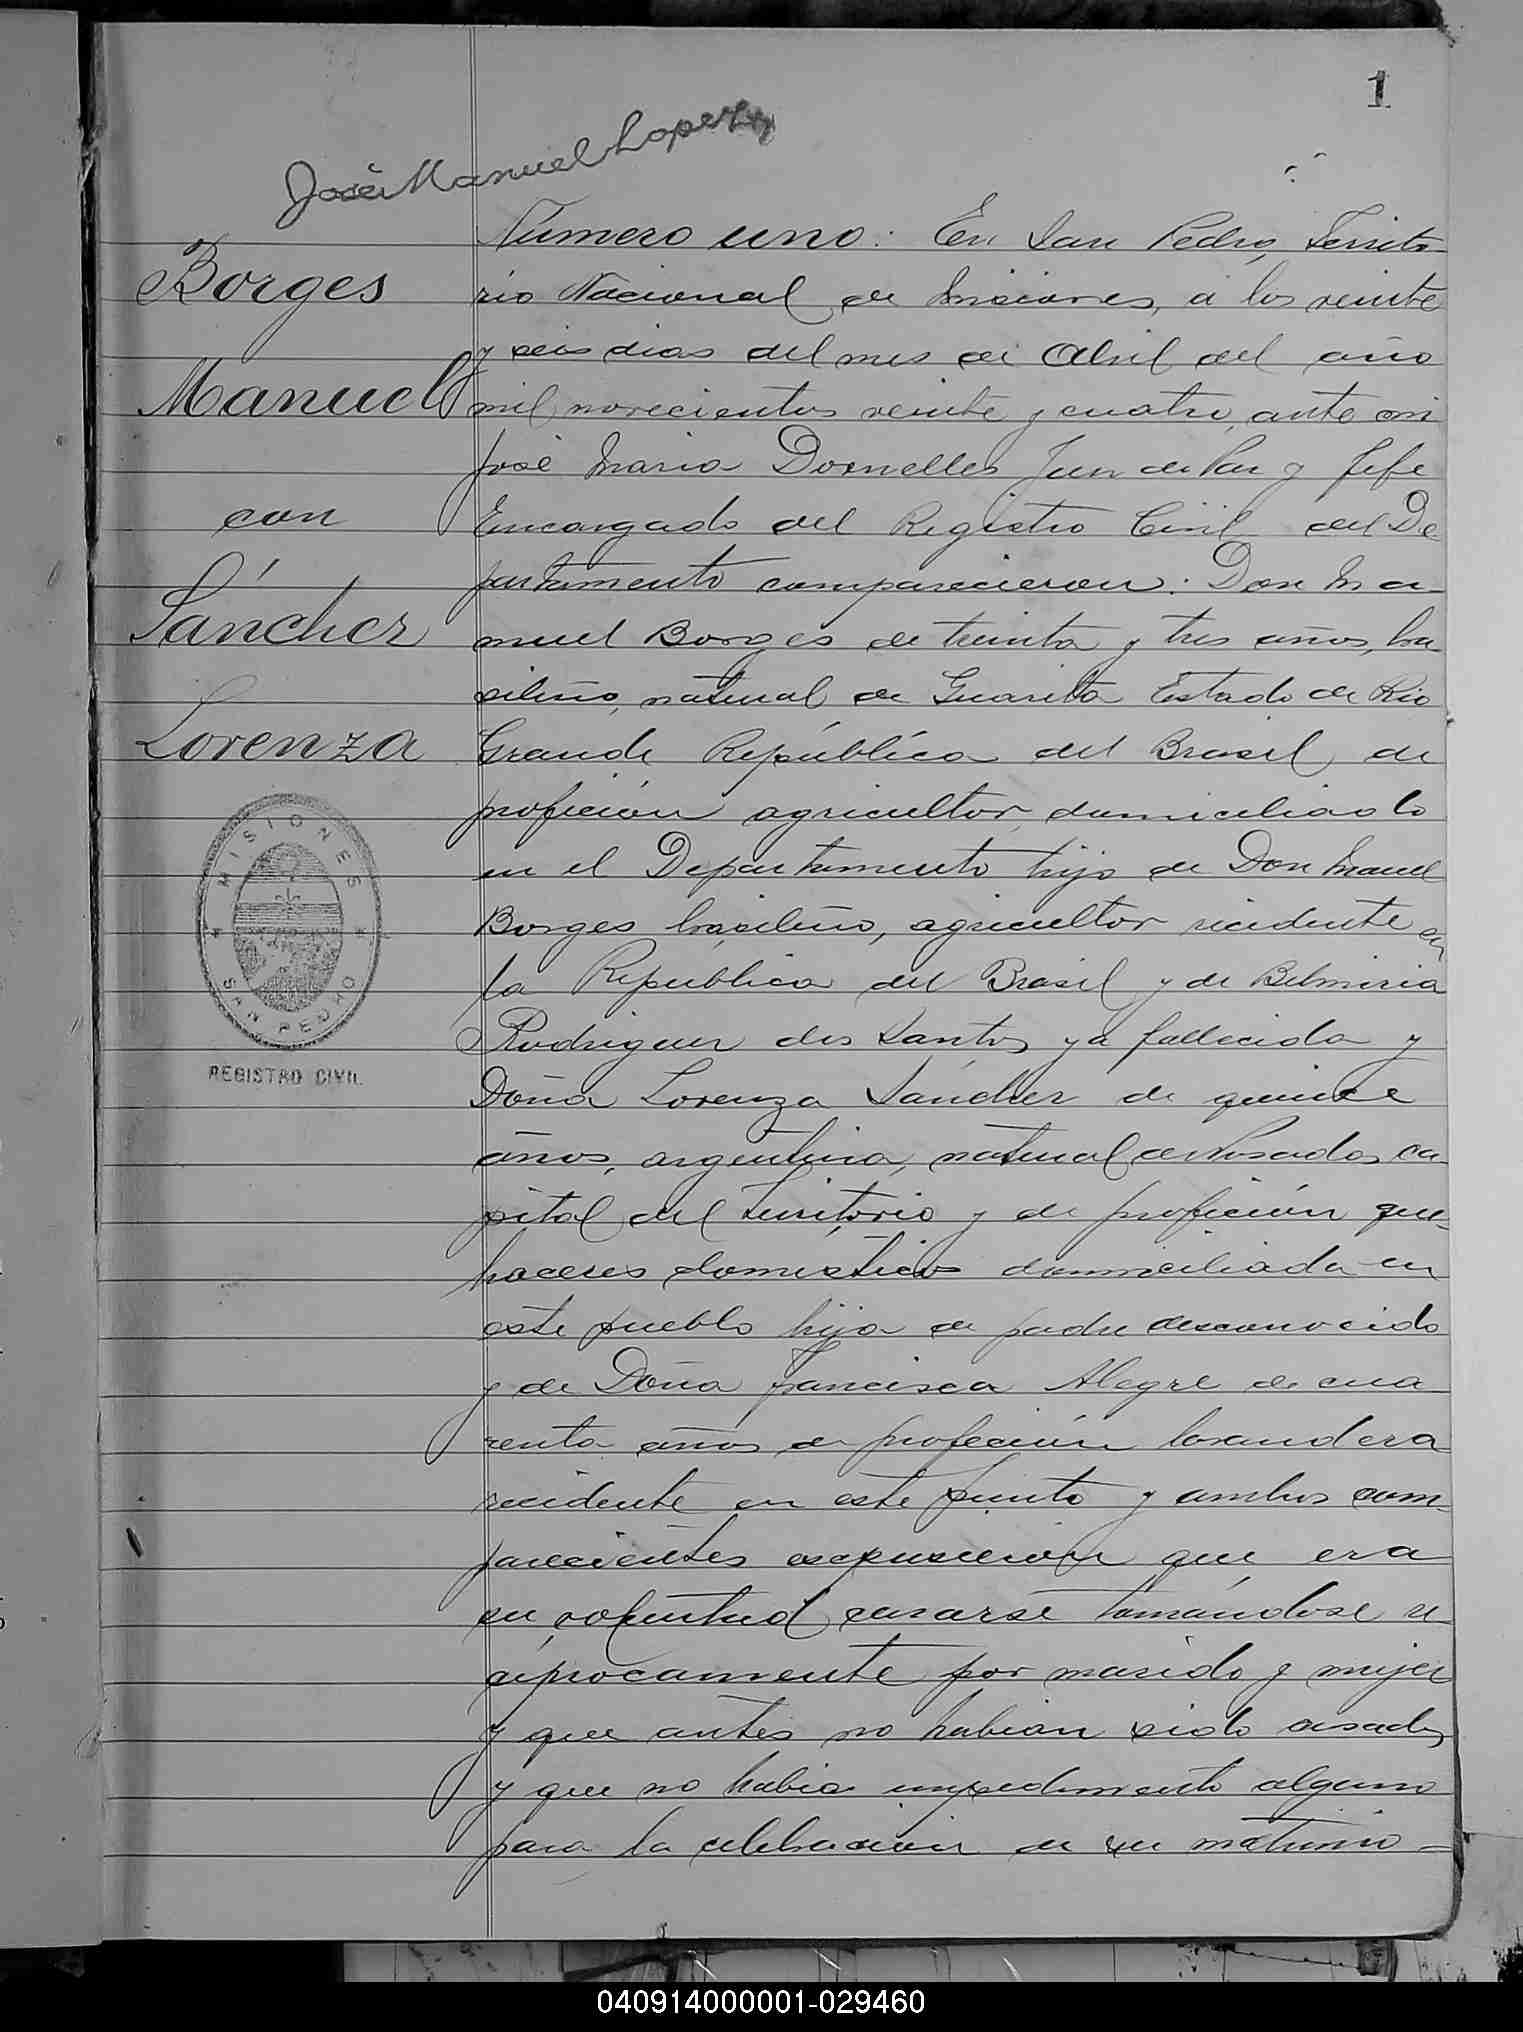 1
José Manuel Lopez
Borges
Manuel
con
Sánchez
Lorenza
MISIONES
SAN PEDRO
REGISTRO CIVIL
Número uno: En San Pedro, Territo-
rio Nacional de Misiones, á los veinte
y seis dias del mes de Abril del año
mil novecientos veinte y cuatro, ante mi
José Maria Dornelles Juez de Paz y Jefe
Encargado del Registro Civil del De
partamento comparecieron: Don Ma-
nuel Borges de treinta y tres años, bra
sileño, natural de Guarita Estado de Rio
Grande República del Brasil de
profición agricultor, domiciliado
en el Departamento hijo de Don Manuel
Borges brasileño, agricultor recidente en
la Republica del Brasil y de Belmiria
Rodriguez dos Santos ya fallecida y
Doña Lorenza Sánchez de quince
años, argentina, natural de Posadas ca-
pital del territorio y de profición que-
haceres domesticos domiciliada en
este pueblo hija de padre desconocido
y de Doña Francisca Alegre de cua-
renta años de profeción lavandera
recidente en este punto y ambos com-
parecientes expusieron que era
su voluntad casarse tomándose re-
ciprocamente por marido y mujer
y que antes no habian sido casados
y que no habia impedimento alguno
para la celebracion de su matrimo-
040914000001-029460